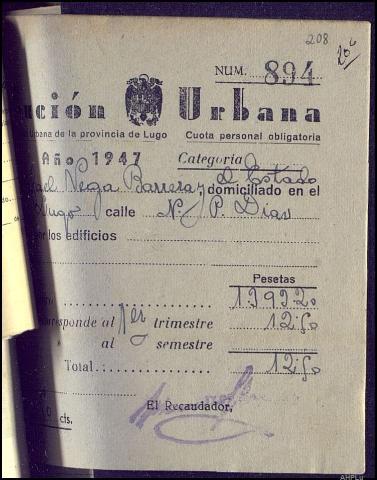 208
NUM. 894
ción Urbana
Urbana de la provincia de Lugo Cuota personal obligatoria
Año 1947 Categoría
ael Vega Barrera, el Estado domiciliado en el
Lugo calle N. P. Dias
por los edificios
Pesetas
1992.20
corresponde al 1er trimestre 12.50
al semestre
Total 12.50
El Recaudador,
0 cts.
AHPLu